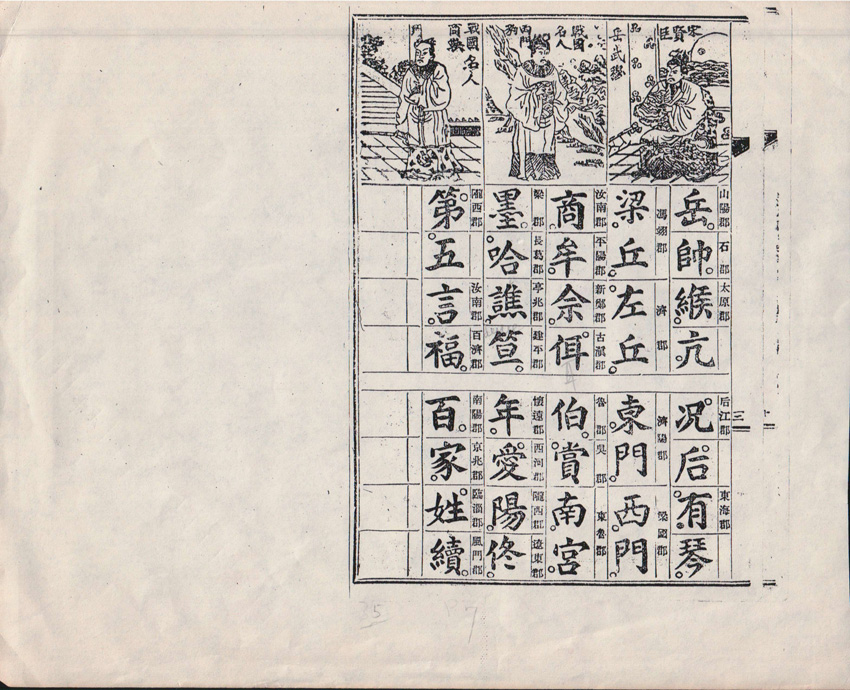 宋賢臣
岳武穆
戰國名人
西門豹
戰國名人
商鞅
山陽郡 石郡 太原郡
岳帥緱亢
馮翊郡 濟郡
梁丘左丘
汝南郡 平陽郡 新鄭郡 古滇郡
商牟佘佴
梁郡 長葛郡 亭兆郡 建平郡
墨哈譙笪
隴西郡 汝南郡 百濟郡
第五言福
后江郡 東海郡
況后有琴
濟陽郡 梁國郡
東門西門
魯郡 吳郡 東魯郡
伯賞南宮
懷遠郡 西河郡 隴西郡 遼東郡
年愛陽佟
南陽郡 京兆郡 臨淄郡 風門郡
百家姓續
三
35
7